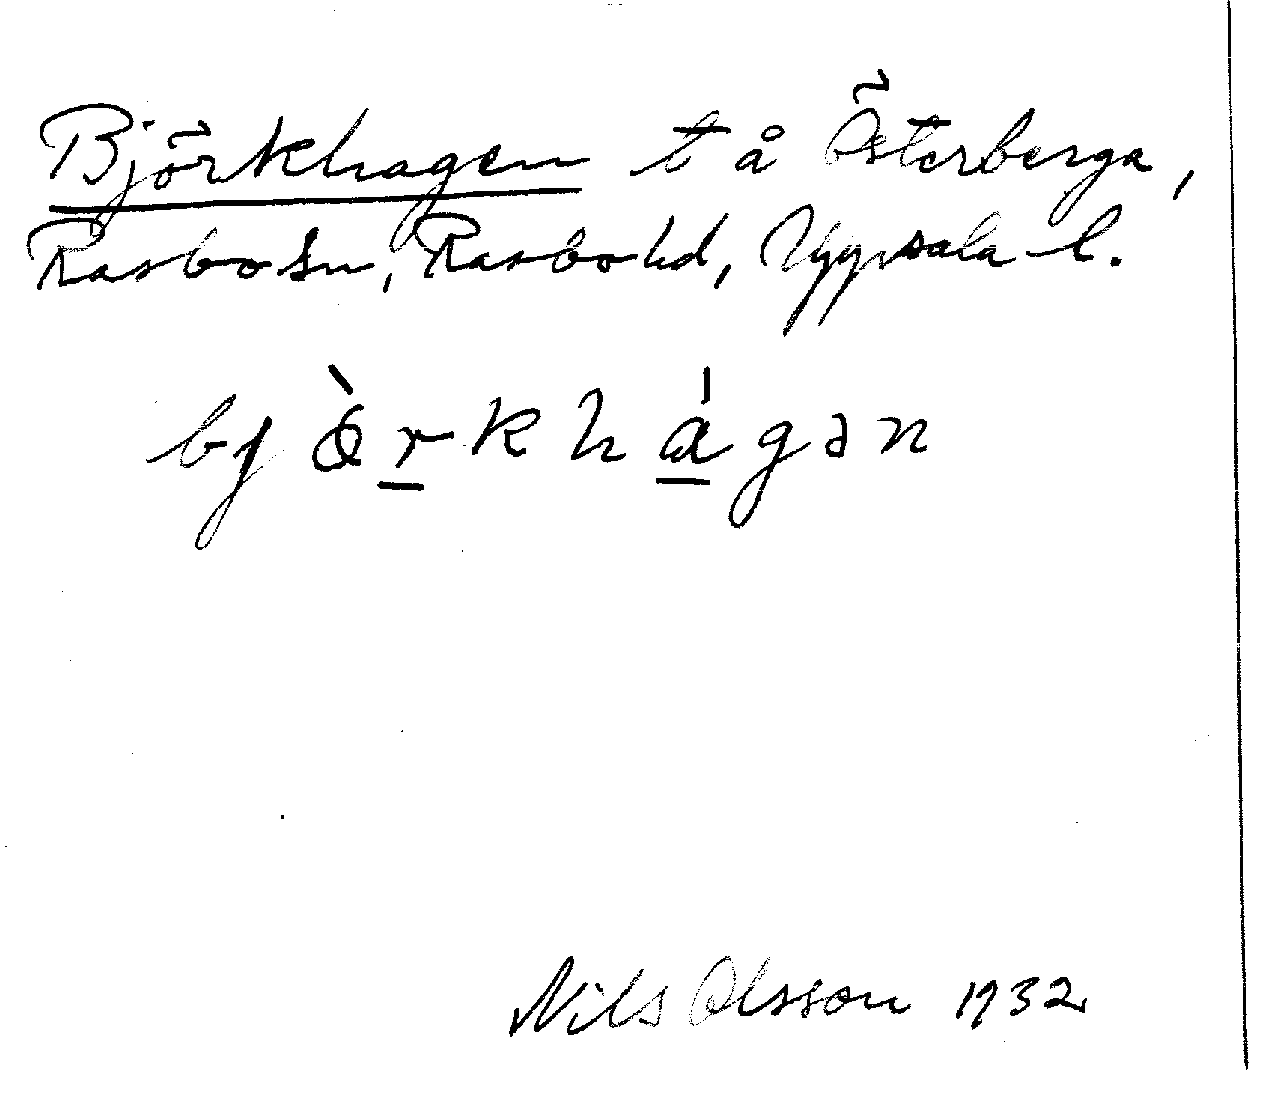 Björkhagen t å Österberga,
Rasbo sn, Rasbo hd, Uppsala l.
bjòrkhágən
Nils Olsson 1932